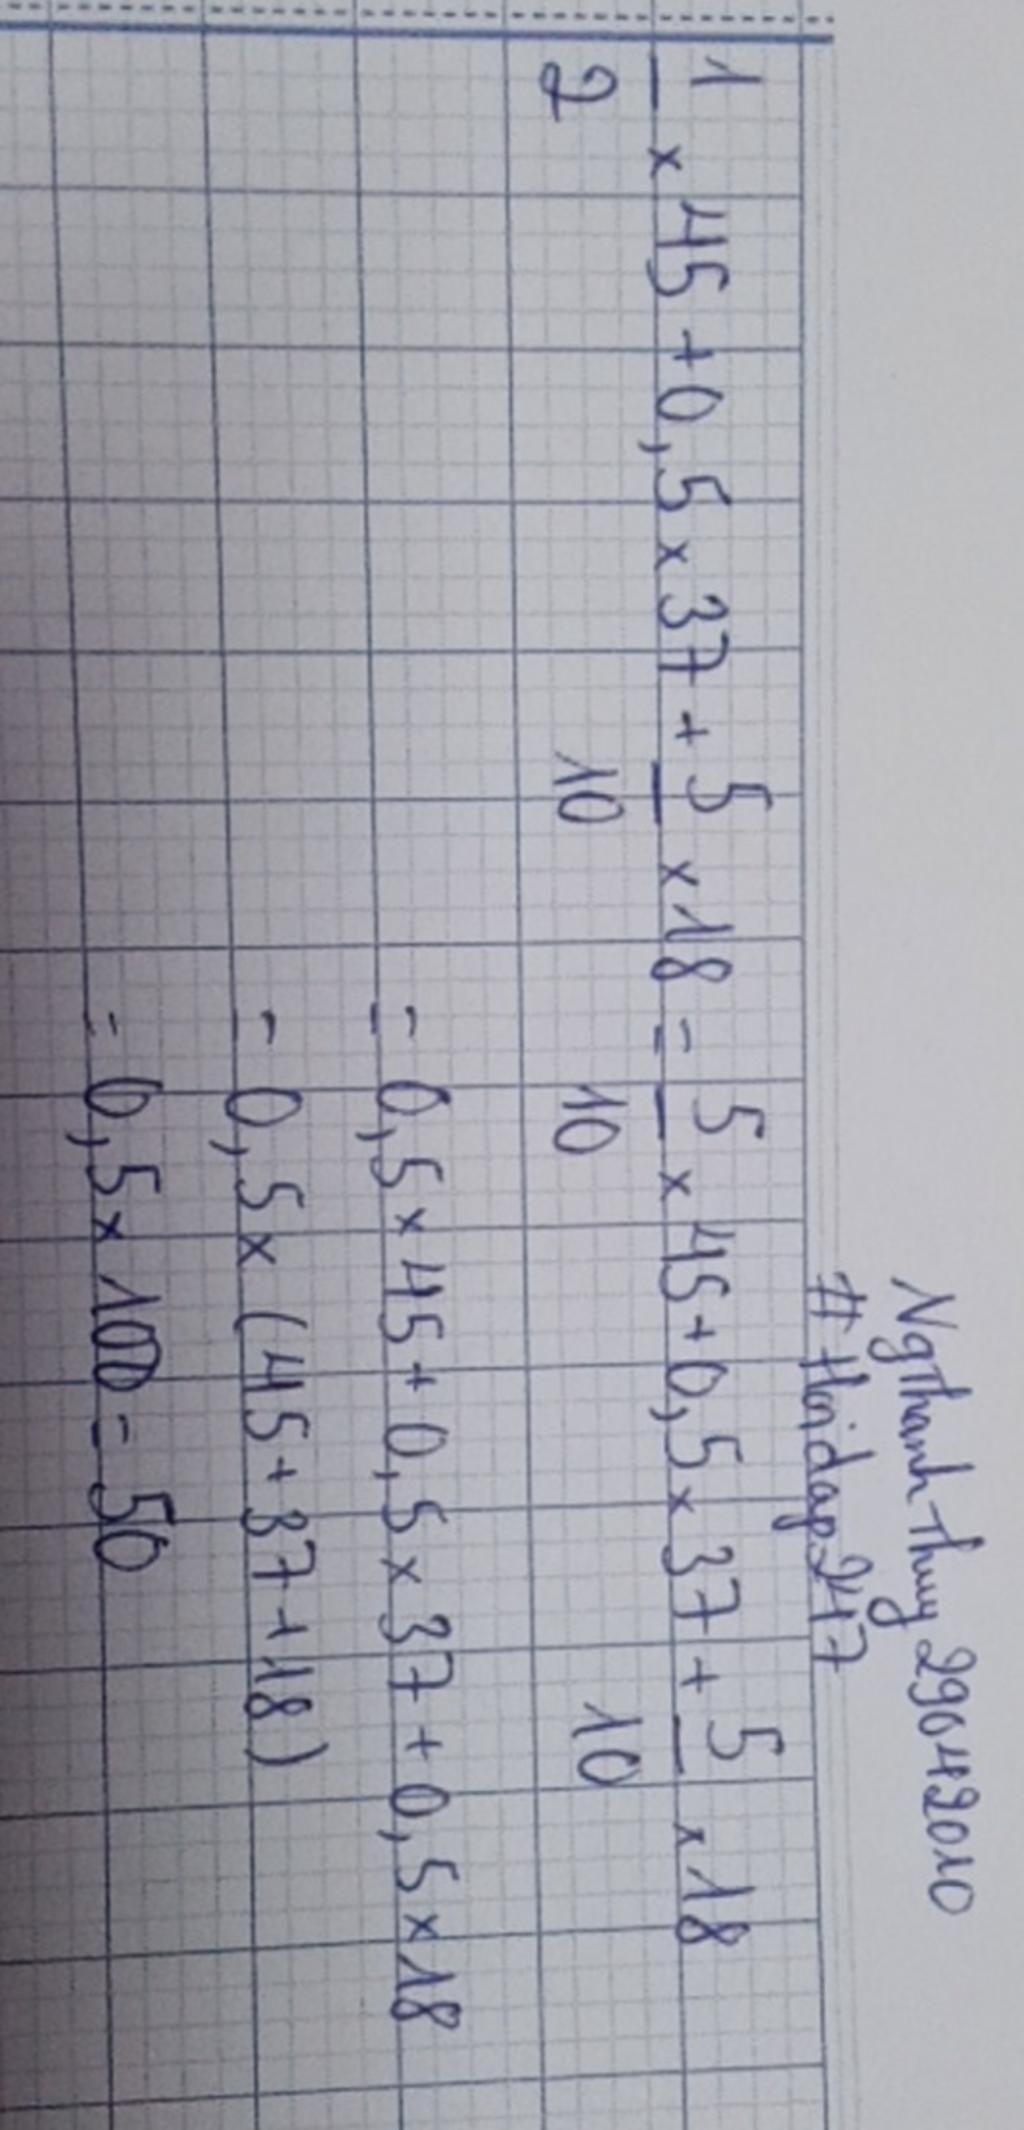 NgThanhThuy29042010
#Hoidap247
1/2 x 45 + 0,5 x 37 + 5/10 x 18 = 5/10 x 45 + 0,5 x 37 + 5/10 x 18
= 0,5 x 45 + 0,5 x 37 + 0,5 x 18
= 0,5 x (45 + 37 + 18)
= 0,5 x 100 = 50